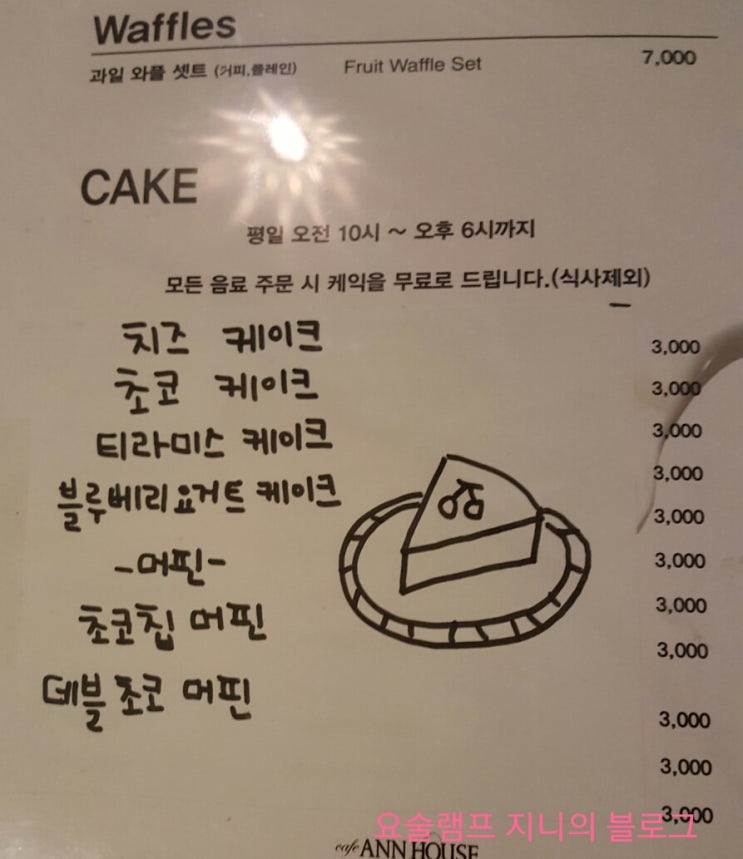 Waffles
과일 와플 셋트 (커피,플레인) Fruit Waffle Set 7,000
CAKE
평일 오전 10시 ~ 오후 6시까지
모든 음료 주문 시 케익을 무료로 드립니다.(식사제외)
치즈 케이크 3,000
초코 케이크 3,000
티라미스 케이크 3,000
블루베리요거트 케이크 3,000
3,000
-머핀- 3,000
초코칩 머핀 3,000
3,000
데블초코 머핀 3,000
3,000
3,000
요술램프 지니의 블로그
cafe ANN HOUSE